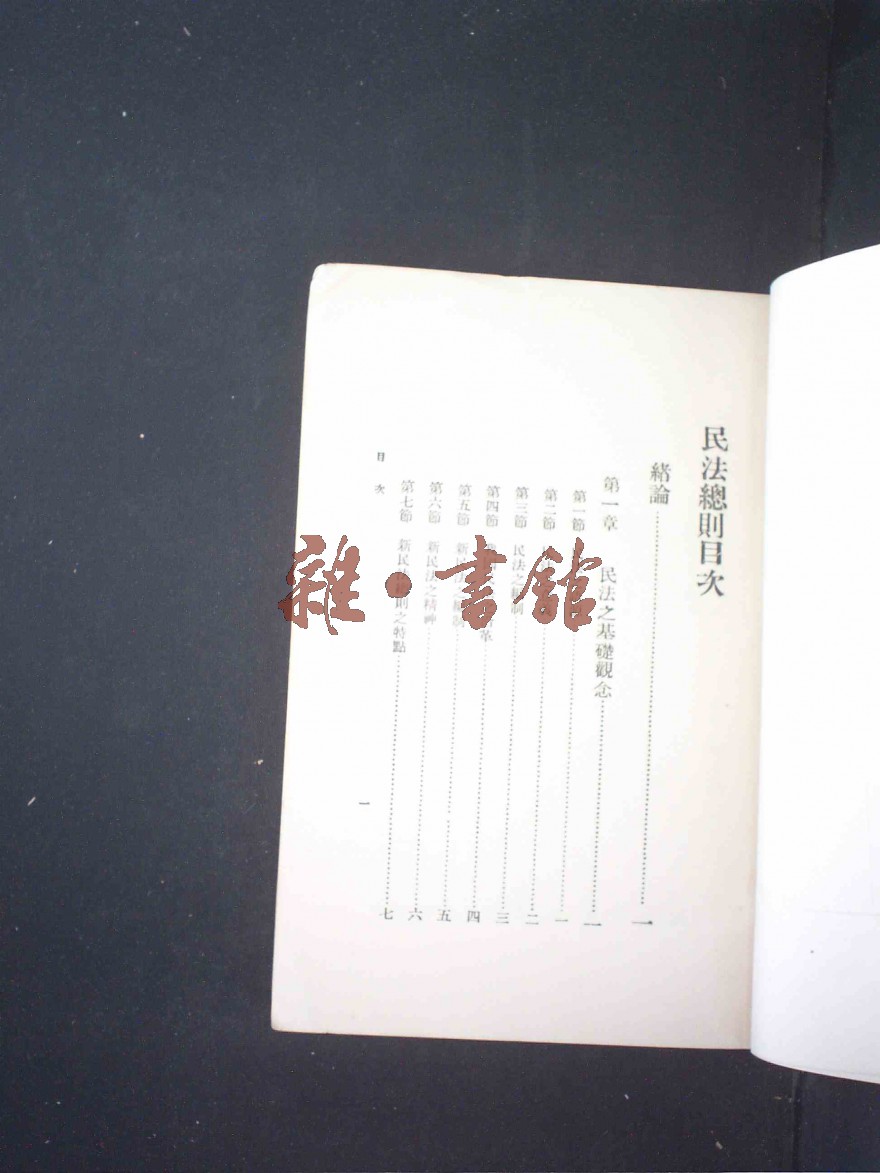 民法總則目次
緒論……一
第一章 民法之基礎觀念……一
第一節……一
第二節……二
第三節 民法之編制……三
第四節 革……四
第五節 新民法之編制……五
第六節 新民法之精神……六
第七節 新民法總則之特點……七
目次
一
雜·書館